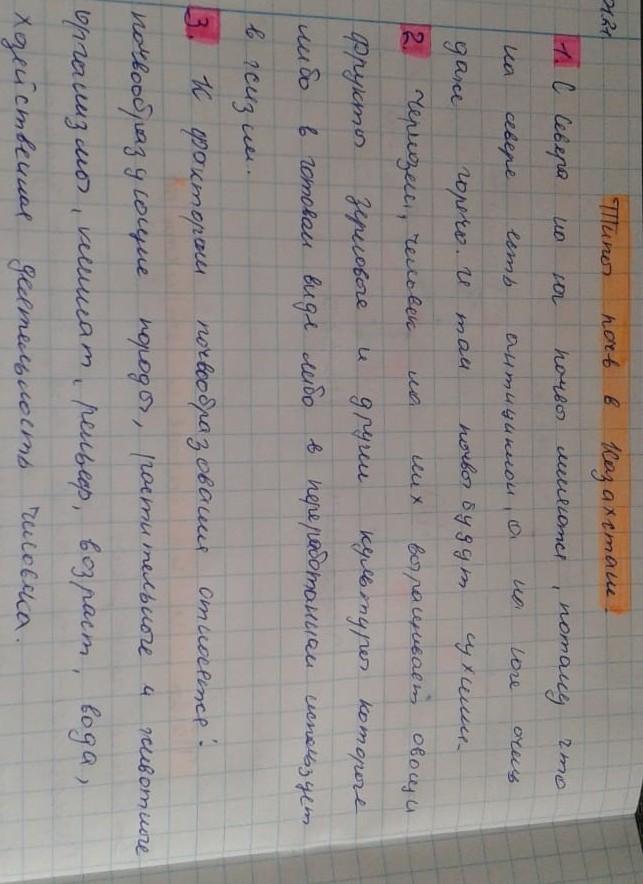 Типы почв в Казахстане.
1. С Севера на юг почвы меняются, потому что
на севере есть антициклон, а на юге очень
даже горячо. И там почвы будут сухими.
2. Чернозем, человек на них возрасчивает овощи
фрукты зерновые и другии культуры которые
либо в готовом виде либо в переработанном использует
в жизни.
3. К факторам почвообразования относется:
почвообразующие породы, растительные и животные
организмы, климат, рельеф, возраст, вода,
хозяйственная деятельность человека.